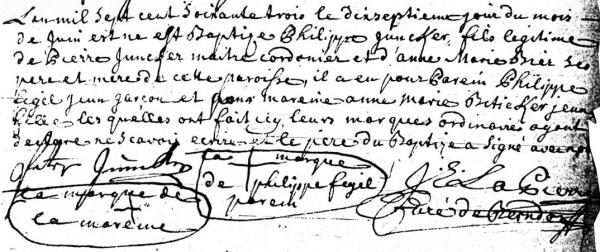 Lan mil Sept cent Soixante trois le dixseptieme jour du mois
de Juin est ne est Baptize Philippe Juncker, fils legitime
de Pierre Juncker maitre cordonier et d'anne Marie Bier ses
pere et mere de cette paroisse, il a eu pour Parein Philippe
fegil jeun garcon et pour mareine anne Marie jeune
fille lesquelles ont fait icy leurs marques ordinaires ayant
declare ne scavoir ecrire et le pere du Baptize a Signé avec nous
Peter Juncker la + marque
de philippe feigil
parein
la marque de
+
la mareine
La Pierre
Curé de